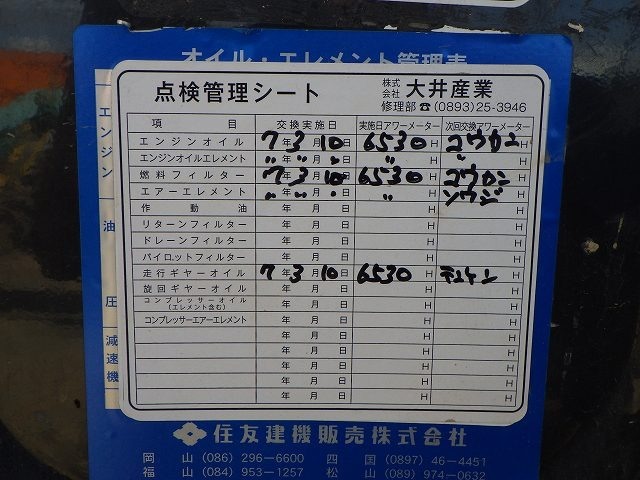 オイル・エレメント管理表
点検管理シート 株式会社 大井産業
修理部 ☎ (0893)25-3946
項 目 交換実施日 実施日アワーメーター 次回交換アワーメーター
エンジンオイル 7年3月10日 6530H コウカンH
エンジンオイルエレメント 〃年〃月〃日 〃H 〃H
燃料フィルター 7年3月10日 6530H コウカンH
エアーエレメント 〃年〃月〃日 〃H ソウジH
作動油 年 月 日 H H
リターンフィルター 年 月 日 H H
ドレーンフィルター 年 月 日 H H
パイロットフィルター 年 月 日 H H
走行ギヤーオイル 7年3月10日 6530H テンケンH
旋回ギヤーオイル 年 月 日 H H
コンプレッサーオイル(エレメント含む) 年 月 日 H H
コンプレッサーエアーエレメント 年 月 日 H H
年 月 日 H H
年 月 日 H H
年 月 日 H H
年 月 日 H H
年 月 日 H H
エンジン
油
圧
減速機
住友建機販売株式会社
岡 山 (086) 296-6600 四 国 (0897) 46-4451
福 山 (084) 953-1257 松 山 (089) 974-0632